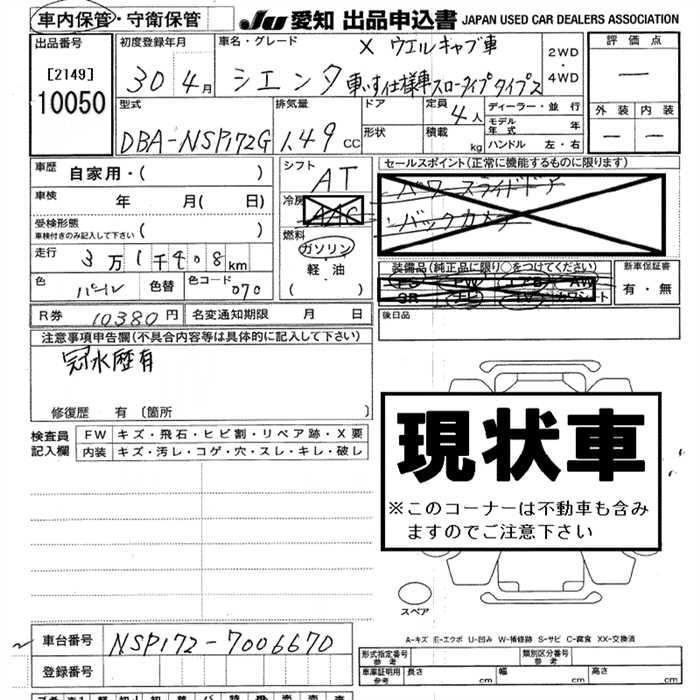 車内保管・守衛保管
JU 愛知 出品申込書 JAPAN USED CAR DEALERS ASSOCIATION
出品番号
[2149]
10050
初度登録年月
30 4月
車名・グレード
X ウエルキャブ車
シエンタ 車いす仕様車スロープタイプ タイプ2
2WD
・
4WD
評価点
—
外装 内装
— —
型式
DBA-NSP172G
排気量
1.49 CC
ドア
形状
定員 4人
積載 kg
ディーラー・並行
モデル年式 年
ハンドル 左・右
車歴 自家用・( )
車検 年 月( 日)
受検形態
車検付きのみ記入して下さい ( )
走行 3万1千408km
色 パール 色替 色コード 070
シフト
AT
冷房
AAC
燃料
ガソリン
・
軽油
( )
セールスポイント(正常に機能するものに限ります)
パワースライドドア
バックカメラ
装備品(純正品に限り○をつけてください)
PS PW AW
SR ナビ TV カワシート
新車保証書
有・無
R券 10380円 名変通知期限 月 日
後日品
注意事項申告欄(不具合内容等は具体的に記入して下さい)
冠水歴有
修復歴 有 〔箇所 〕
検査員
記入欄
FW キズ・飛石・ヒビ割・リペア跡・X要
内装 キズ・汚レ・コゲ・穴・スレ・キレ・破レ
現状車
※このコーナーは不動車も含み
ますのでご注意下さい
スペア
A-キズ E-エクボ U-凹み W-補修跡 S-サビ C-腐食 XX-交換済
車台番号 NSP172-7006670
登録番号
形式指定番号
参考
類別区分番号
参考
車庫証明用
参考
長さ cm 幅 cm 高さ cm